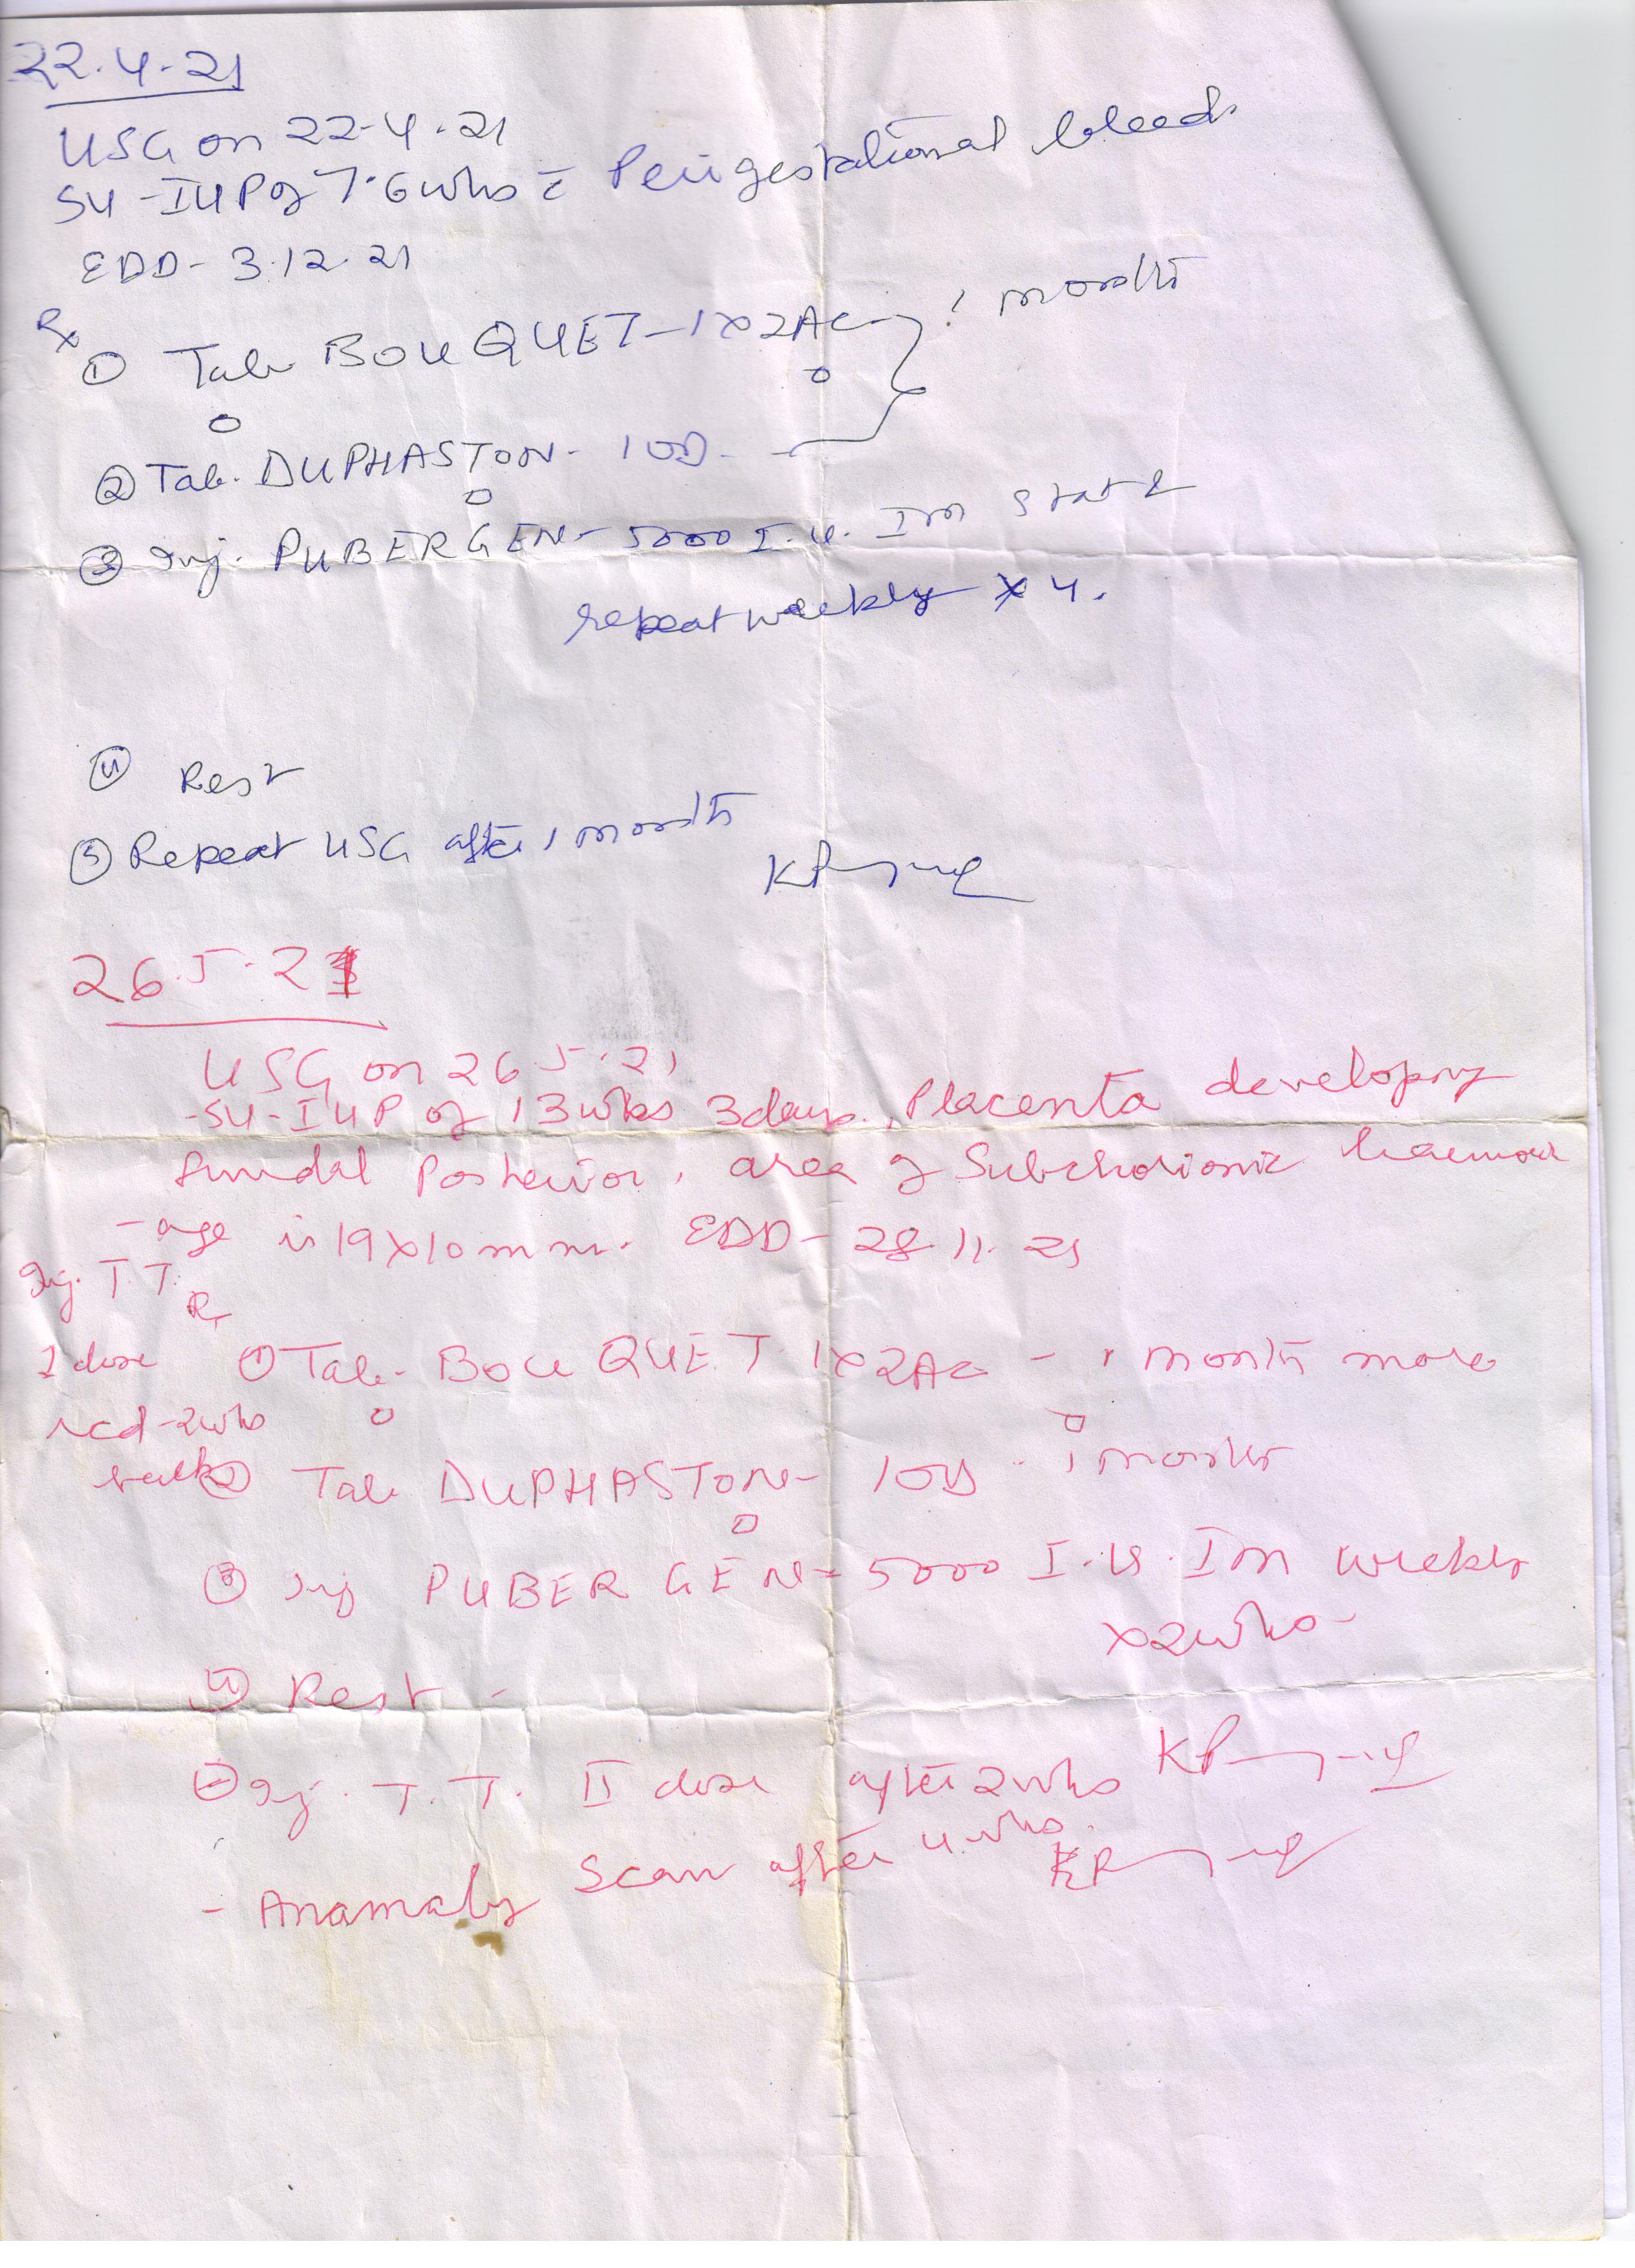 22.4.21
USG on 22-4-21
SLI-IUP of 7.6 wks c̄ Perigestational bleed.
EDD- 3.12.21
Rx
① Tab BOUQUET - 1x2AC } 1 month
② Tab. DUPHASTON - 1 OD -
③ Inj. PUBERGEN - 5000 I.U. Im Stat &
repeat weekly x 4.
④ Rest
⑤ Repeat USG after 1 month
26.5.21
USG on 26 5.21
-SLI-IUP of 13 wks 3 days, Placenta developing
fundal Posterior, area of Subchorionic haemorr
-age is 19x10 mm. EDD- 28.11.21
Inj. T.T.
Rx
1 dose
① Tab. BOUQUET 1x2AC - 1 month more
rcd-2wks
back
② Tab DUPHASTON - 1 OD - 1 month
③ Inj PUBERGEN - 5000 I.U. Im weekly
x2wks-
④ Rest -
- Inj. T.T. II dose after 2wks
- Anamaly Scan after 4 wks.